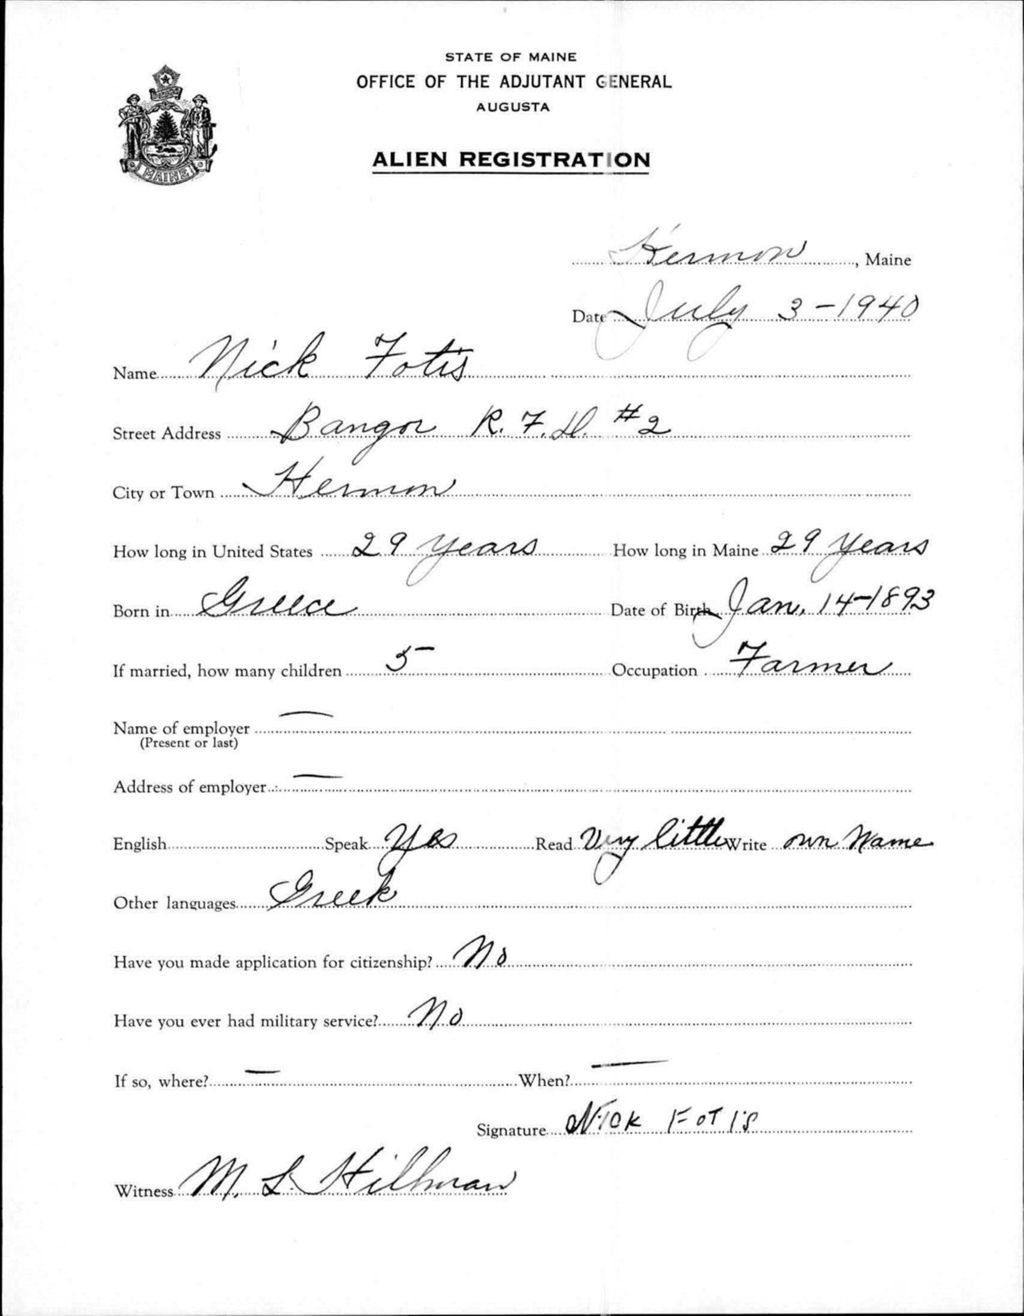 STATE OF MAINE
OFFICE OF THE ADJUTANT GENERAL
AUGUSTA
ALIEN REGISTRATION
MAINE
Hermon, Maine
Date July 3-1940
Name Nick Fotis
Street Address Bangor R.F.D. #2
City or Town Hermon
How long in United States 29 years How long in Maine 29 years
Born in Greece Date of Birth Jan. 14-1893
If married, how many children 5 Occupation Farmer
Name of employer —
(Present or last)
Address of employer —
English Speak Yes Read Very little Write own Name
Other languages Greek
Have you made application for citizenship? No
Have you ever had military service? No
If so, where? — When? —
Signature Nick Fotis
Witness M. L. Hillman